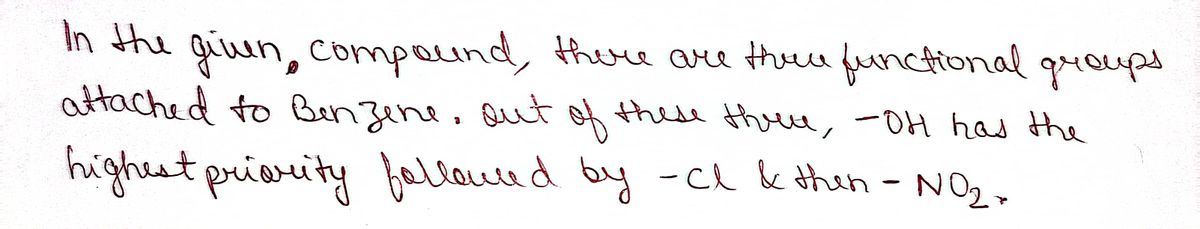 In the given, compound, there are three functional groups
attached to Benzene. Out of these three, -OH has the
highest priority followed by -Cl & then - NO2.